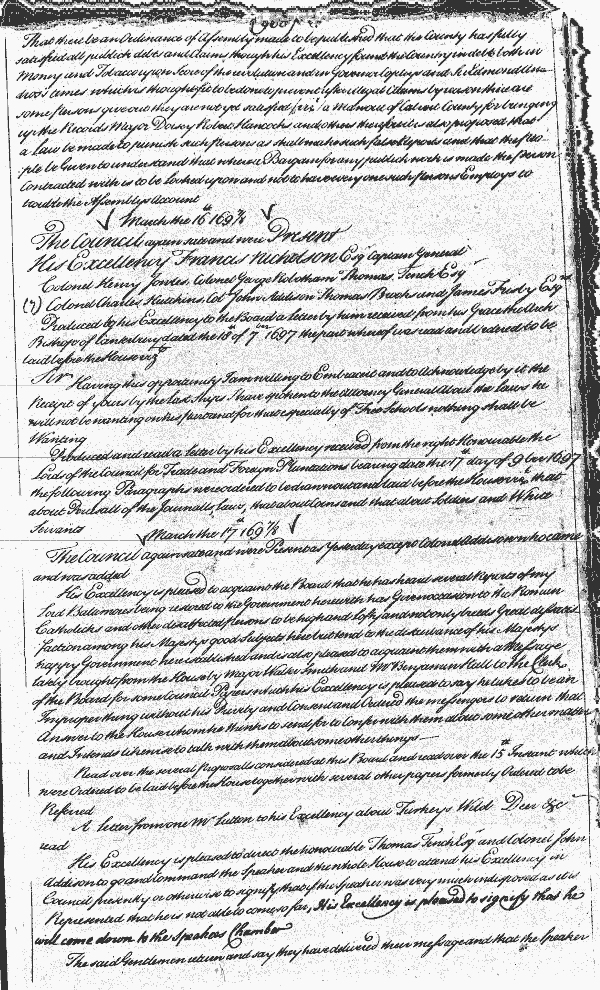 That there be an Ordinance of Assembly made to be published that the County has fully
satisfied all publick debts and Claims though his Excellency found the Country in debt both in
Money and Tobacco upon Score of the revolution and in Governor Copleys and Sr Edmond An
dros times which is thought fit to be done to prevent after illegal Claims by reason there are
some persons give out they are not yet satisfied viz a man out of Calvert County for bringing
up the Records Major Dorsey Robert Hancocks and others therefore it is also proposed that
a Law be made to punish such persons as shall make such false reports and that the peo-
ple be Given to understand that where a Bargain for any publick work is made the person
Contracted with is to be looked upon and not to have every one such persons Employs to
trouble the Assemblys account
March the 16th 1697/8
The Council again sate and were Present
His Excellency Francis Nicholson Esqr Captain General
Colonel Henry Jowles, Colonel George Robotham Thomas Tench Esqr
(7) Colonel Charles Hutchins, Col John Addison Thomas Brooke and James Frisby Esqrs
Produced by his Excellency to the Board a Letter by him received from his Grace the Lord
Bishop of Canterbury dated the 18th of 7ber 1697 the part whereof was read and ordered to be
laid before the House vizt
Sir
Having this opportunity I am willing to Embrace it and to acknowledge by it the
Receipt of yours by the last Ships I have spoken to the Attorney General about the Laws he
will not be wanting on his part and for those especially of Free Schools nothing shall be
Wanting
Produced and read a Letter by his Excellency received from the right Honourable the
Lords of the Council for Trade and Foreign Plantations bearing date the 17th day of 9ber 1697
the following Paragraphs were ordered to be drawn out and laid before the House vizt that
about Perusall of the Journalls, Laws, that about Coin and that about Soldiers and White
Servants
March the 17th 1697/8
The Council again sate and were Present as Yesterday except Colonel Addison who came
and was added
His Excellency is pleased to acquaint the Board that he has heard several Reports of my
Lord Baltimores being restored to the Government here which has Given occasion to the Roman
Catholicks and other disaffected persons to be high and lofty and not only breeds Great
faction among his Majestys good Subjects here but tend to the disturbance of his Majestys
happy Government here established and is also pleased to acquaint them with a Message
lately brought from the House by Major Walter Smith and Mr Benjamin Hall to the Clerk
of the Board for some Council Papers which his Excellency is pleased to say he takes to be an
Improper thing without his Privity and Consent and Ordered the messengers to return that
Answer to the House whom he thinks to send for to Confer with them about some other matters
and Intends likewise to talk with them about some other things
Read over the several Proposalls considered at this Board and read over the 15th Instant which
were Ordered to be laid before the House together with several other papers formerly Ordered to be
Referred
A letter from one Mr Sutton to his Excellency about Turkeys Wild Deer &c
read
His Excellency is pleased to direct the honourable Thomas Tench Esqr and Colonel John
Addison to go and command the Speaker and the whole House to attend his Excellency in
Council presently or otherwise to signify that if the Speaker was very much indisposed as it is
Represented that he is not able to come so far, His Excellency is pleased to signify that he
will come down to the Speakers Chamber
The said Gentlemen return and say they have delivered their message and that the Speaker